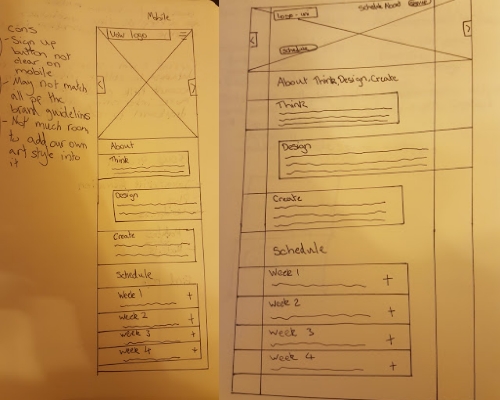 Mobile
cons
- Sign up
button not
clear on
mobile
- May not match
all of the
brand guidelines
- Not much room
to add our own
art style into
it
UW logo
About
Think
Design
Create
Schedule
Week 1 +
Week 2 +
Week 3 +
Week 4 +
Schedule About
Schedule
About Think, Design, Create
Think
Design
Create
Schedule
Week 1 +
Week 2 +
Week 3 +
Week 4 +